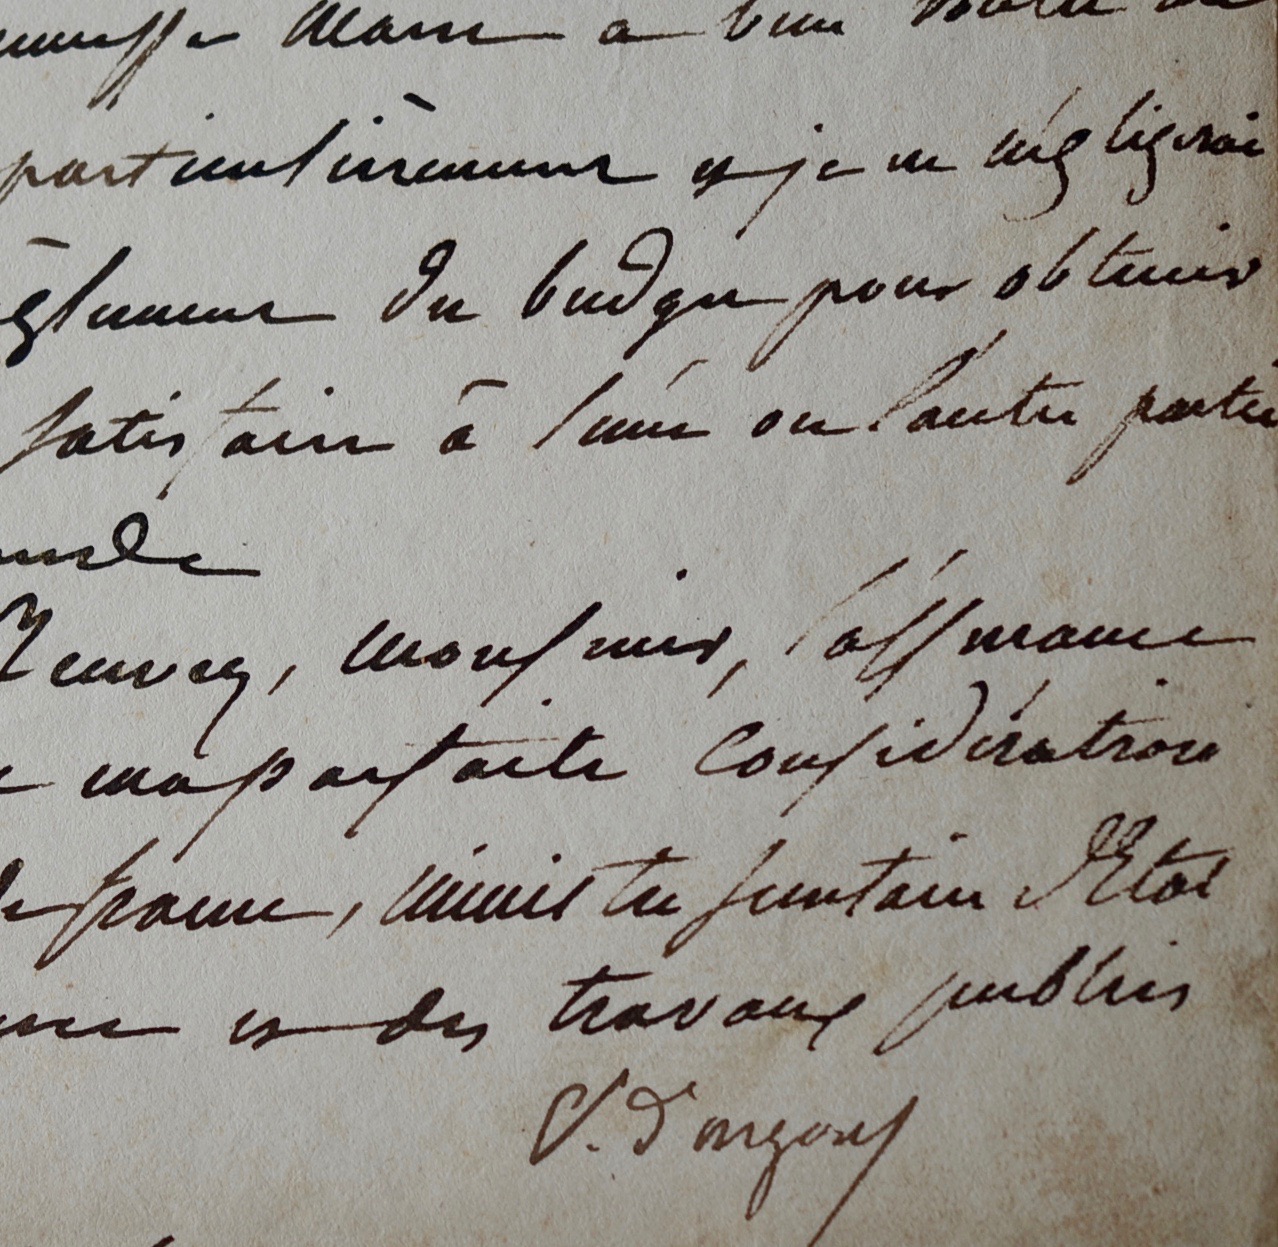 Marie a bien voulu
particulièrement et je ne négligerai
èglement du budget pour obtenir
satisfaire à l'une ou l'autre partie
ande
Recevez, Monsieur, l'assurance
ma parfaite Considération
de france, Ministre secrétaire d'Etat
et des travaux publics